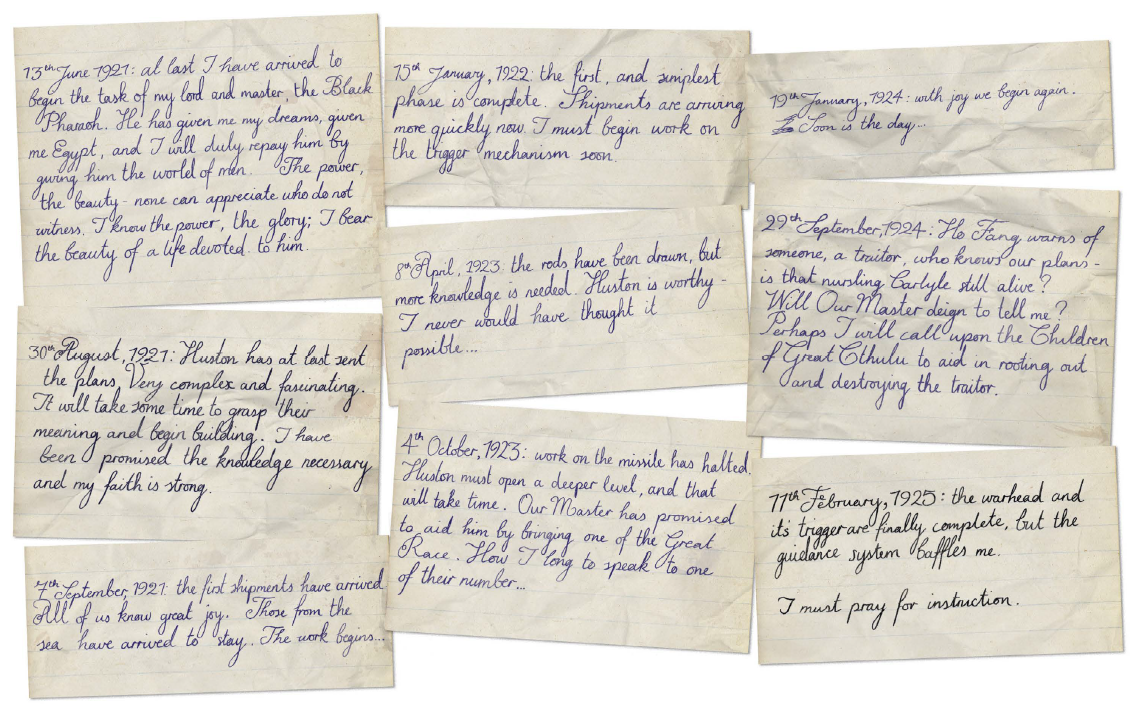 13th June 1921: at last I have arrived to
begin the task of my lord and master, the Black
Pharaoh. He has given me my dreams, given
me Egypt, and I will duly repay him by
giving him the world of men. The power,
the beauty - none can appreciate who do not
witness. I know the power, the glory; I bear
the beauty of a life devoted to him.
30th August, 1921: Huston has at last sent
the plans, Very complex and fascinating.
It will take some time to grasp their
meaning and begin building. I have
been promised the knowledge necessary
and my faith is strong.
7th September, 1921: the first shipments have arrived
All of us know great joy. Those from the
sea have arrived to stay. The work begins...
15th January, 1922: the first, and simplest
phase is complete. Shipments are arriving
more quickly now. I must begin work on
the trigger mechanism soon.
8th April, 1923: the rods have been drawn, but
more knowledge is needed. Huston is worthy -
I never would have thought it
possible...
4th October, 1923: work on the missile has halted.
Huston must open a deeper level, and that
will take time. Our Master has promised
to aid him by bringing one of the Great
Race. How I long to speak to one
of their number...
19th January, 1924: with joy we begin again.
Soon is the day...
29th September, 1924: Ho Fang warns of
someone, a traitor, who knows our plans -
is that nursling Carlyle still alive?
Will Our Master deign to tell me?
Perhaps I will call upon the Children
of Great Cthulu to aid in rooting out
and destroying the traitor.
11th February, 1925: the warhead and
it's trigger are finally complete, but the
guidance system baffles me.
I must pray for instruction.